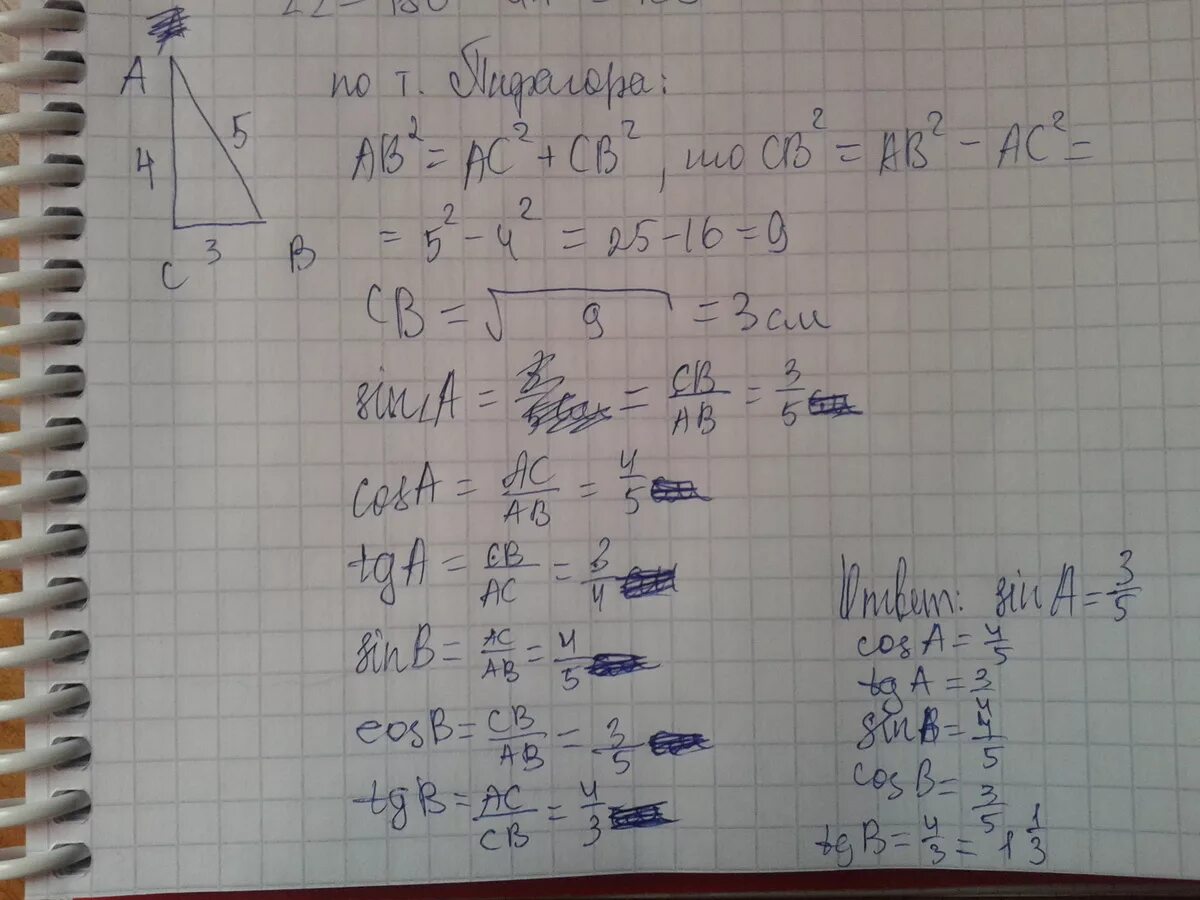 A
5
4
3
C
B
по т. Пифагора:
AB² = AC² + CB², то CB² = AB² − AC² =
= 5² − 4² = 25 − 16 = 9
CB = √9 = 3 см
sin∠A = = CB/AB = 3/5
cosA = AC/AB = 4/5
tgA = CB/AC = 3/4
sinB = AC/AB = 4/5
cosB = CB/AB = 3/5
tgB = AC/CB = 4/3
Ответ: sinA = 3/5
cosA = 4/5
tgA = 3/4
sinB = 4/5
cosB = 3/5
tgB = 4/3 = 1 1/3